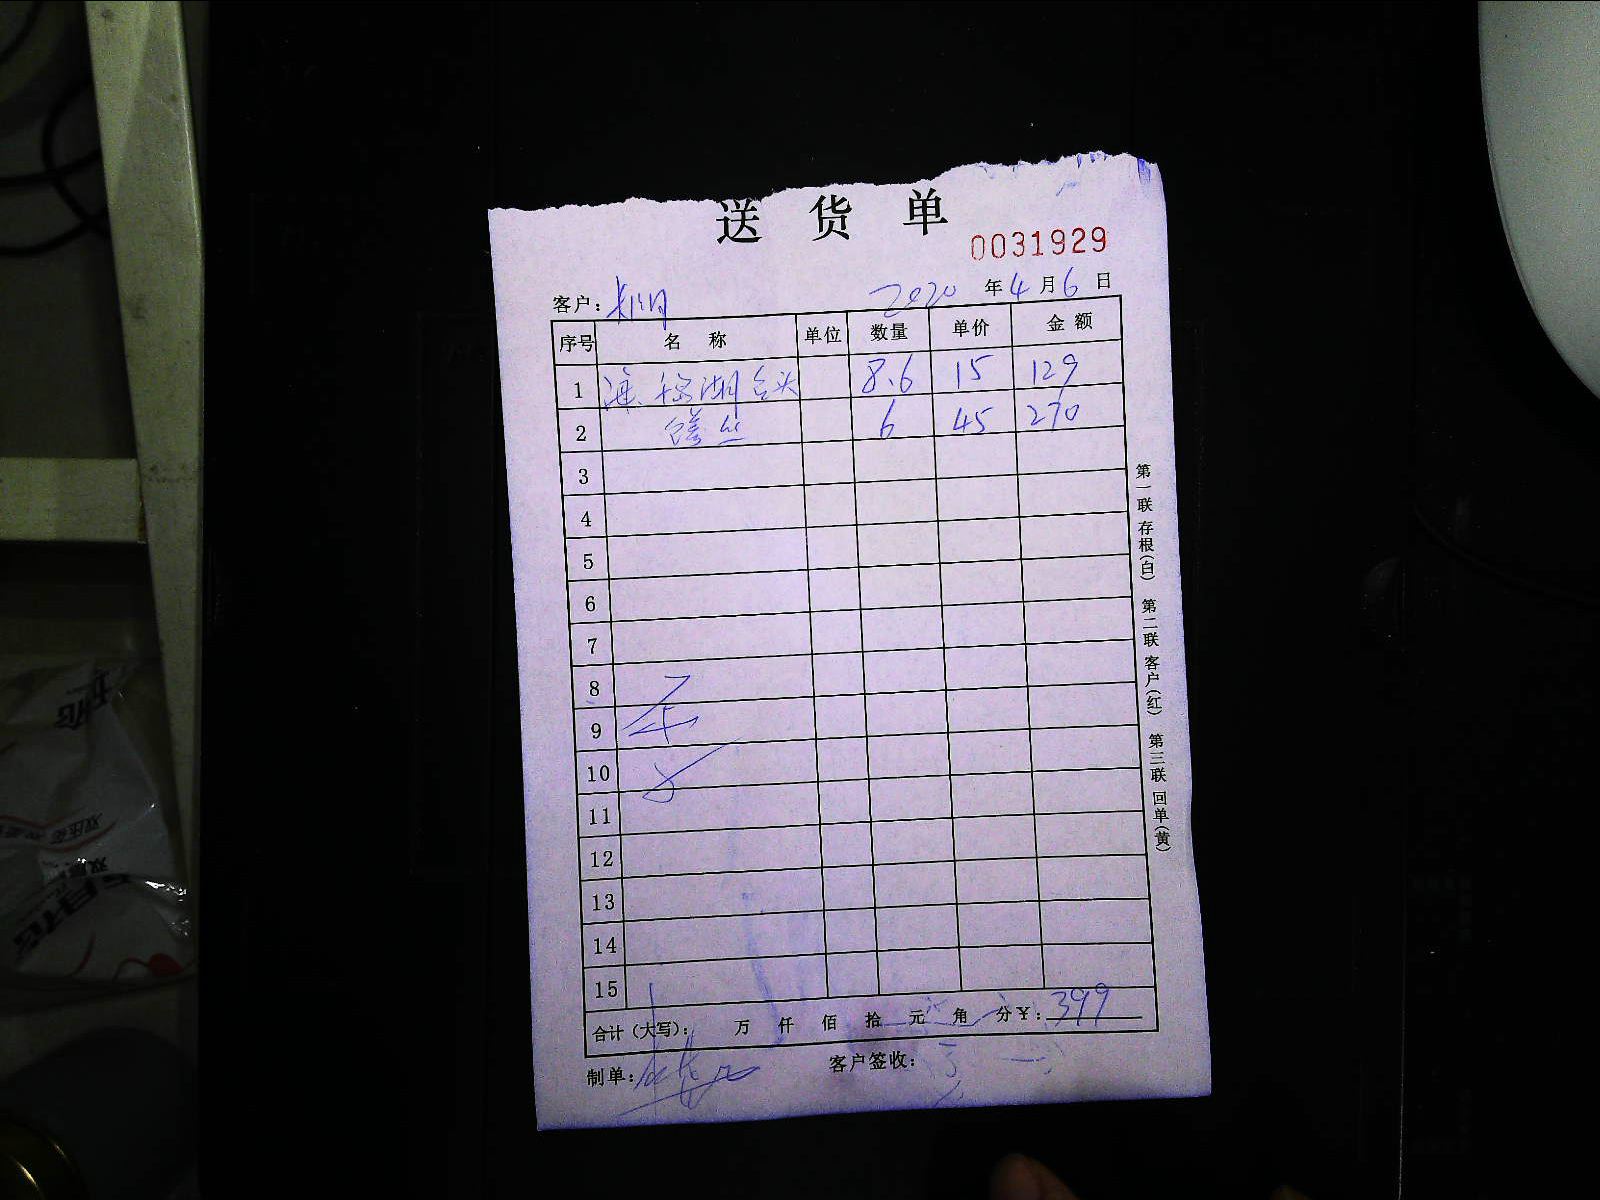 送 货 单
0031929
客户： 2020 年 4 月 6 日
序号 名 称 单位 数量 单价 金 额
1 8.6 15 129
2 6 45 270
3
4
5
6
7
8
9
10
11
12
13
14
15
合计（大写）： 万 仟 佰 拾 元 角 分￥：399
制单： 客户签收：
第一联 存根（白） 第二联 客户（红） 第三联 回单（黄）